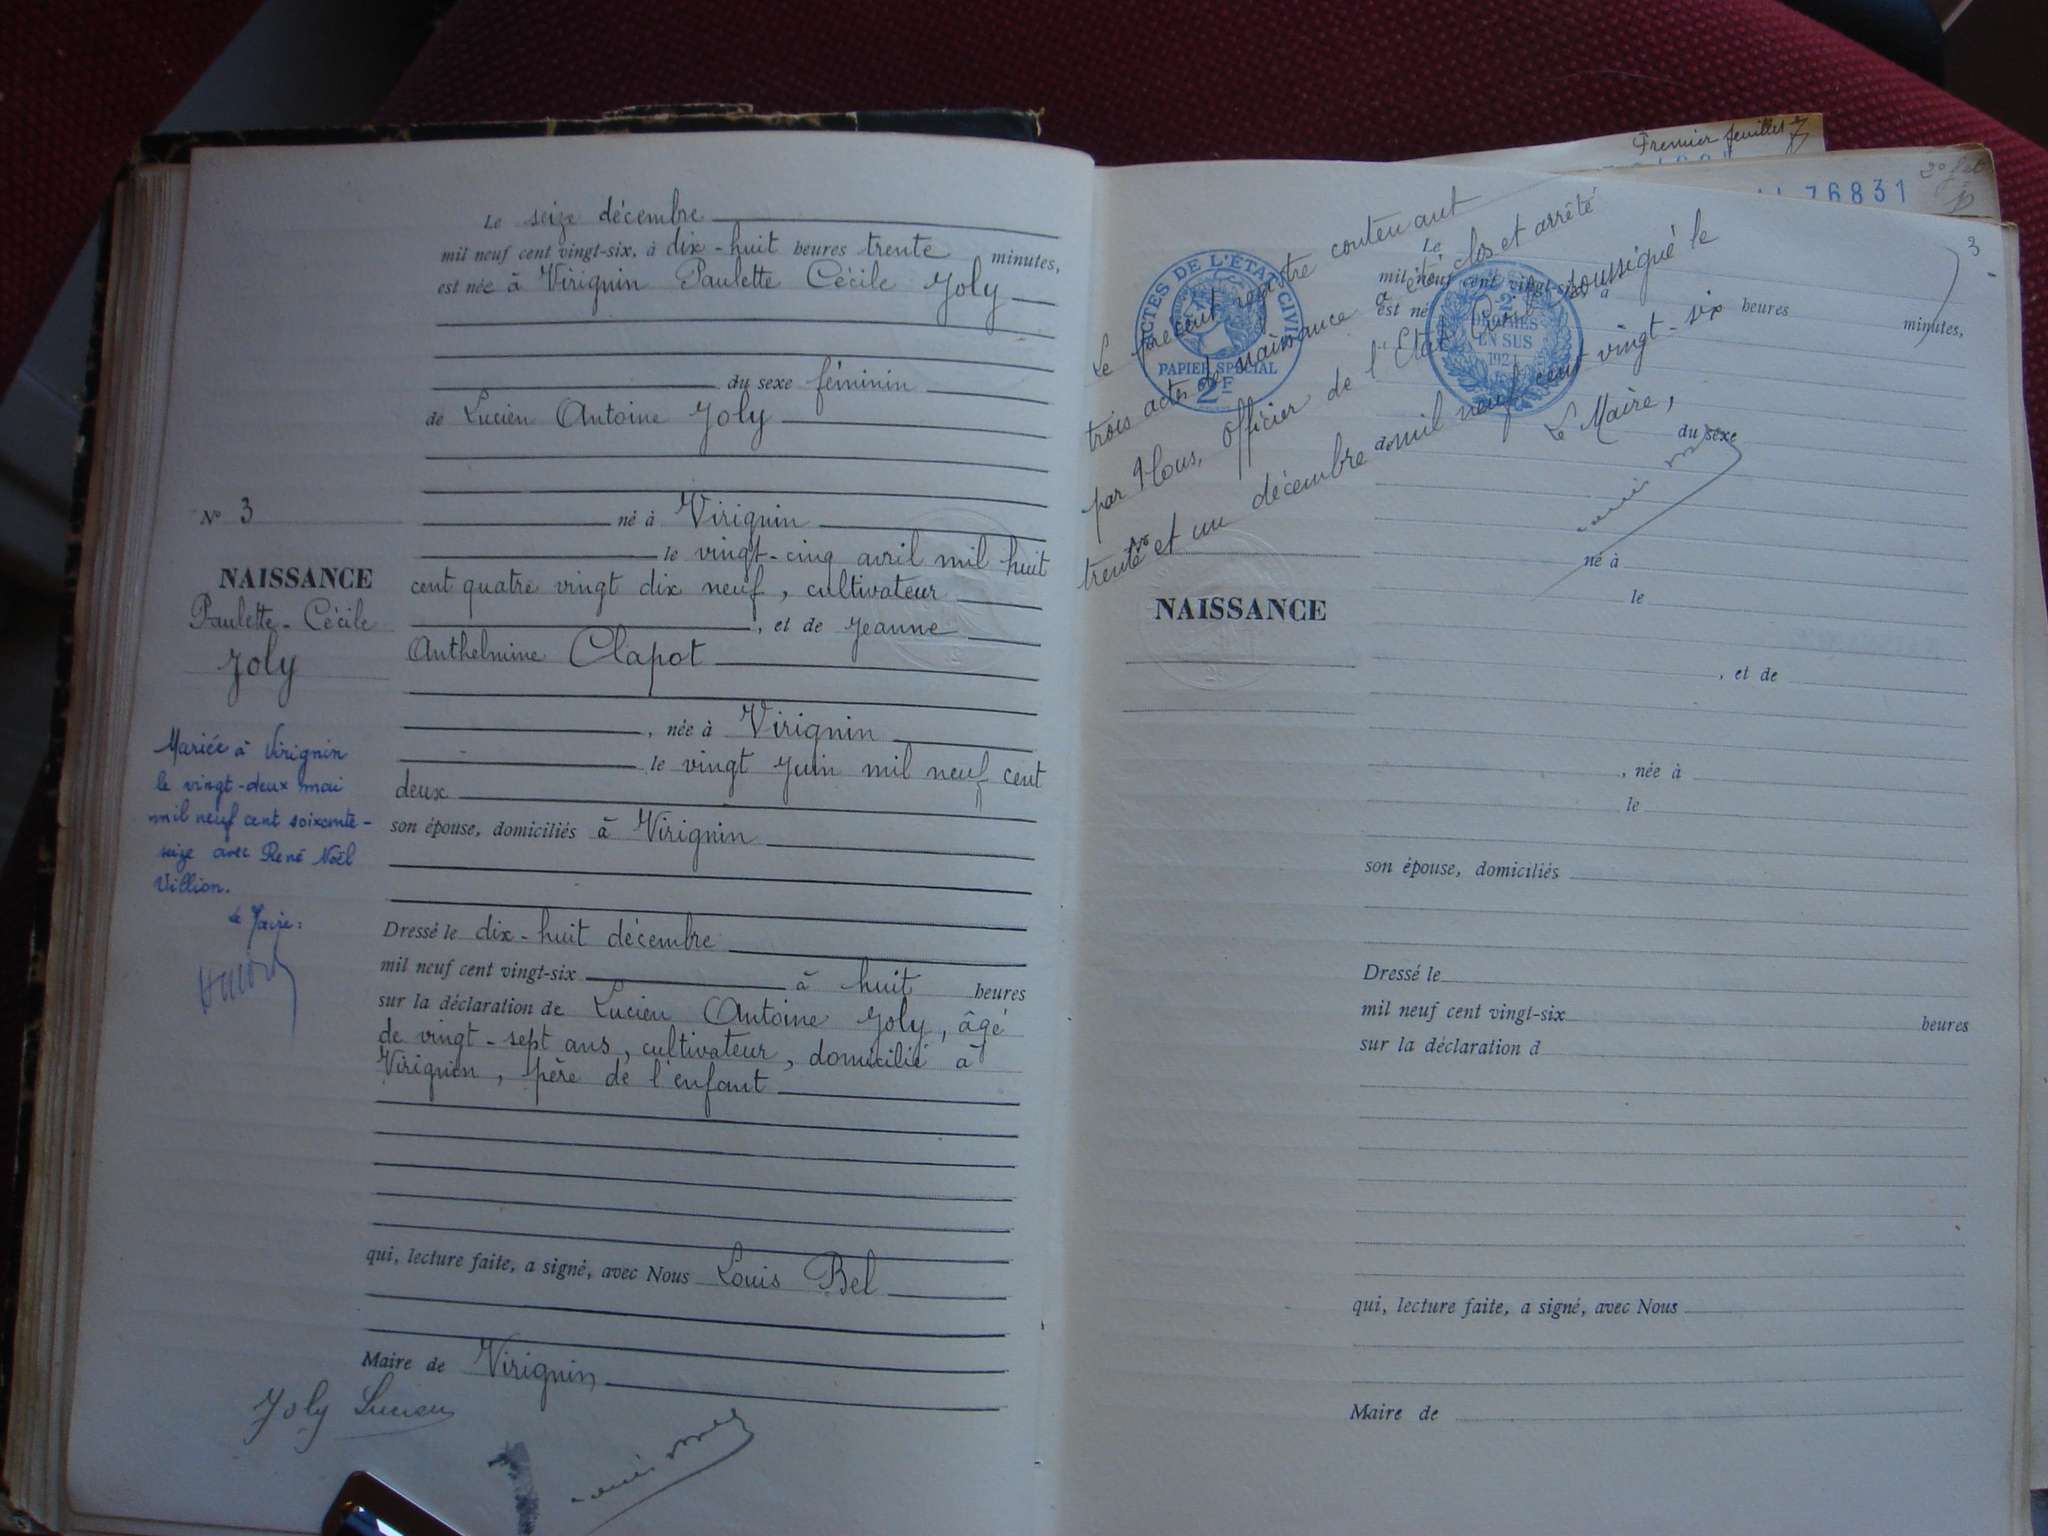 Le seize décembre
mil neuf cent vingt-six, à dix-huit heures trente minutes,
est née à Virignin Paulette Cécile Joly
du sexe féminin
de Lucien Antoine Joly
né à Virignin
le vingt-cinq avril mil huit
cent quatre vingt dix neuf, cultivateur
, et de Jeanne
Anthelmine Clapot
, née à Virignin
le vingt Juin mil neuf cent
deux
son épouse, domiciliés à Virignin
Dressé le dix-huit décembre
mil neuf cent vingt-six à huit heures
sur la déclaration de Lucien Antoine Joly, âgé
de vingt-sept ans, cultivateur, domicilié à
Virignin, père de l'enfant
qui, lecture faite, a signé, avec Nous Louis Bel
Maire de Virignin
Joly Lucien
N° 3
NAISSANCE
Paulette-Cécile
Joly
Mariée à Virignin
le vingt-deux mai
mil neuf cent soixante-
seize avec René Noël
Villion.
Le Maire:
Premier feuillet
76831
3
Le présent registre contenant
trois actes de naissance a été clos et arrêté
par Nous, Officier de l'Etat Civil soussigné le
trente et un décembre mil neuf cent vingt-six
Le Maire,
ACTES DE L'ÉTAT CIVIL
PAPIER SPÉCIAL
2F
2
DÉCIMES
EN SUS
Le
mil neuf cent vingt-six, à heures minutes,
est né
du sexe
de
né à
le
N°
NAISSANCE
, et de
, née à
le
son épouse, domiciliés
Dressé le
mil neuf cent vingt-six heures
sur la déclaration d
qui, lecture faite, a signé, avec Nous
Maire de